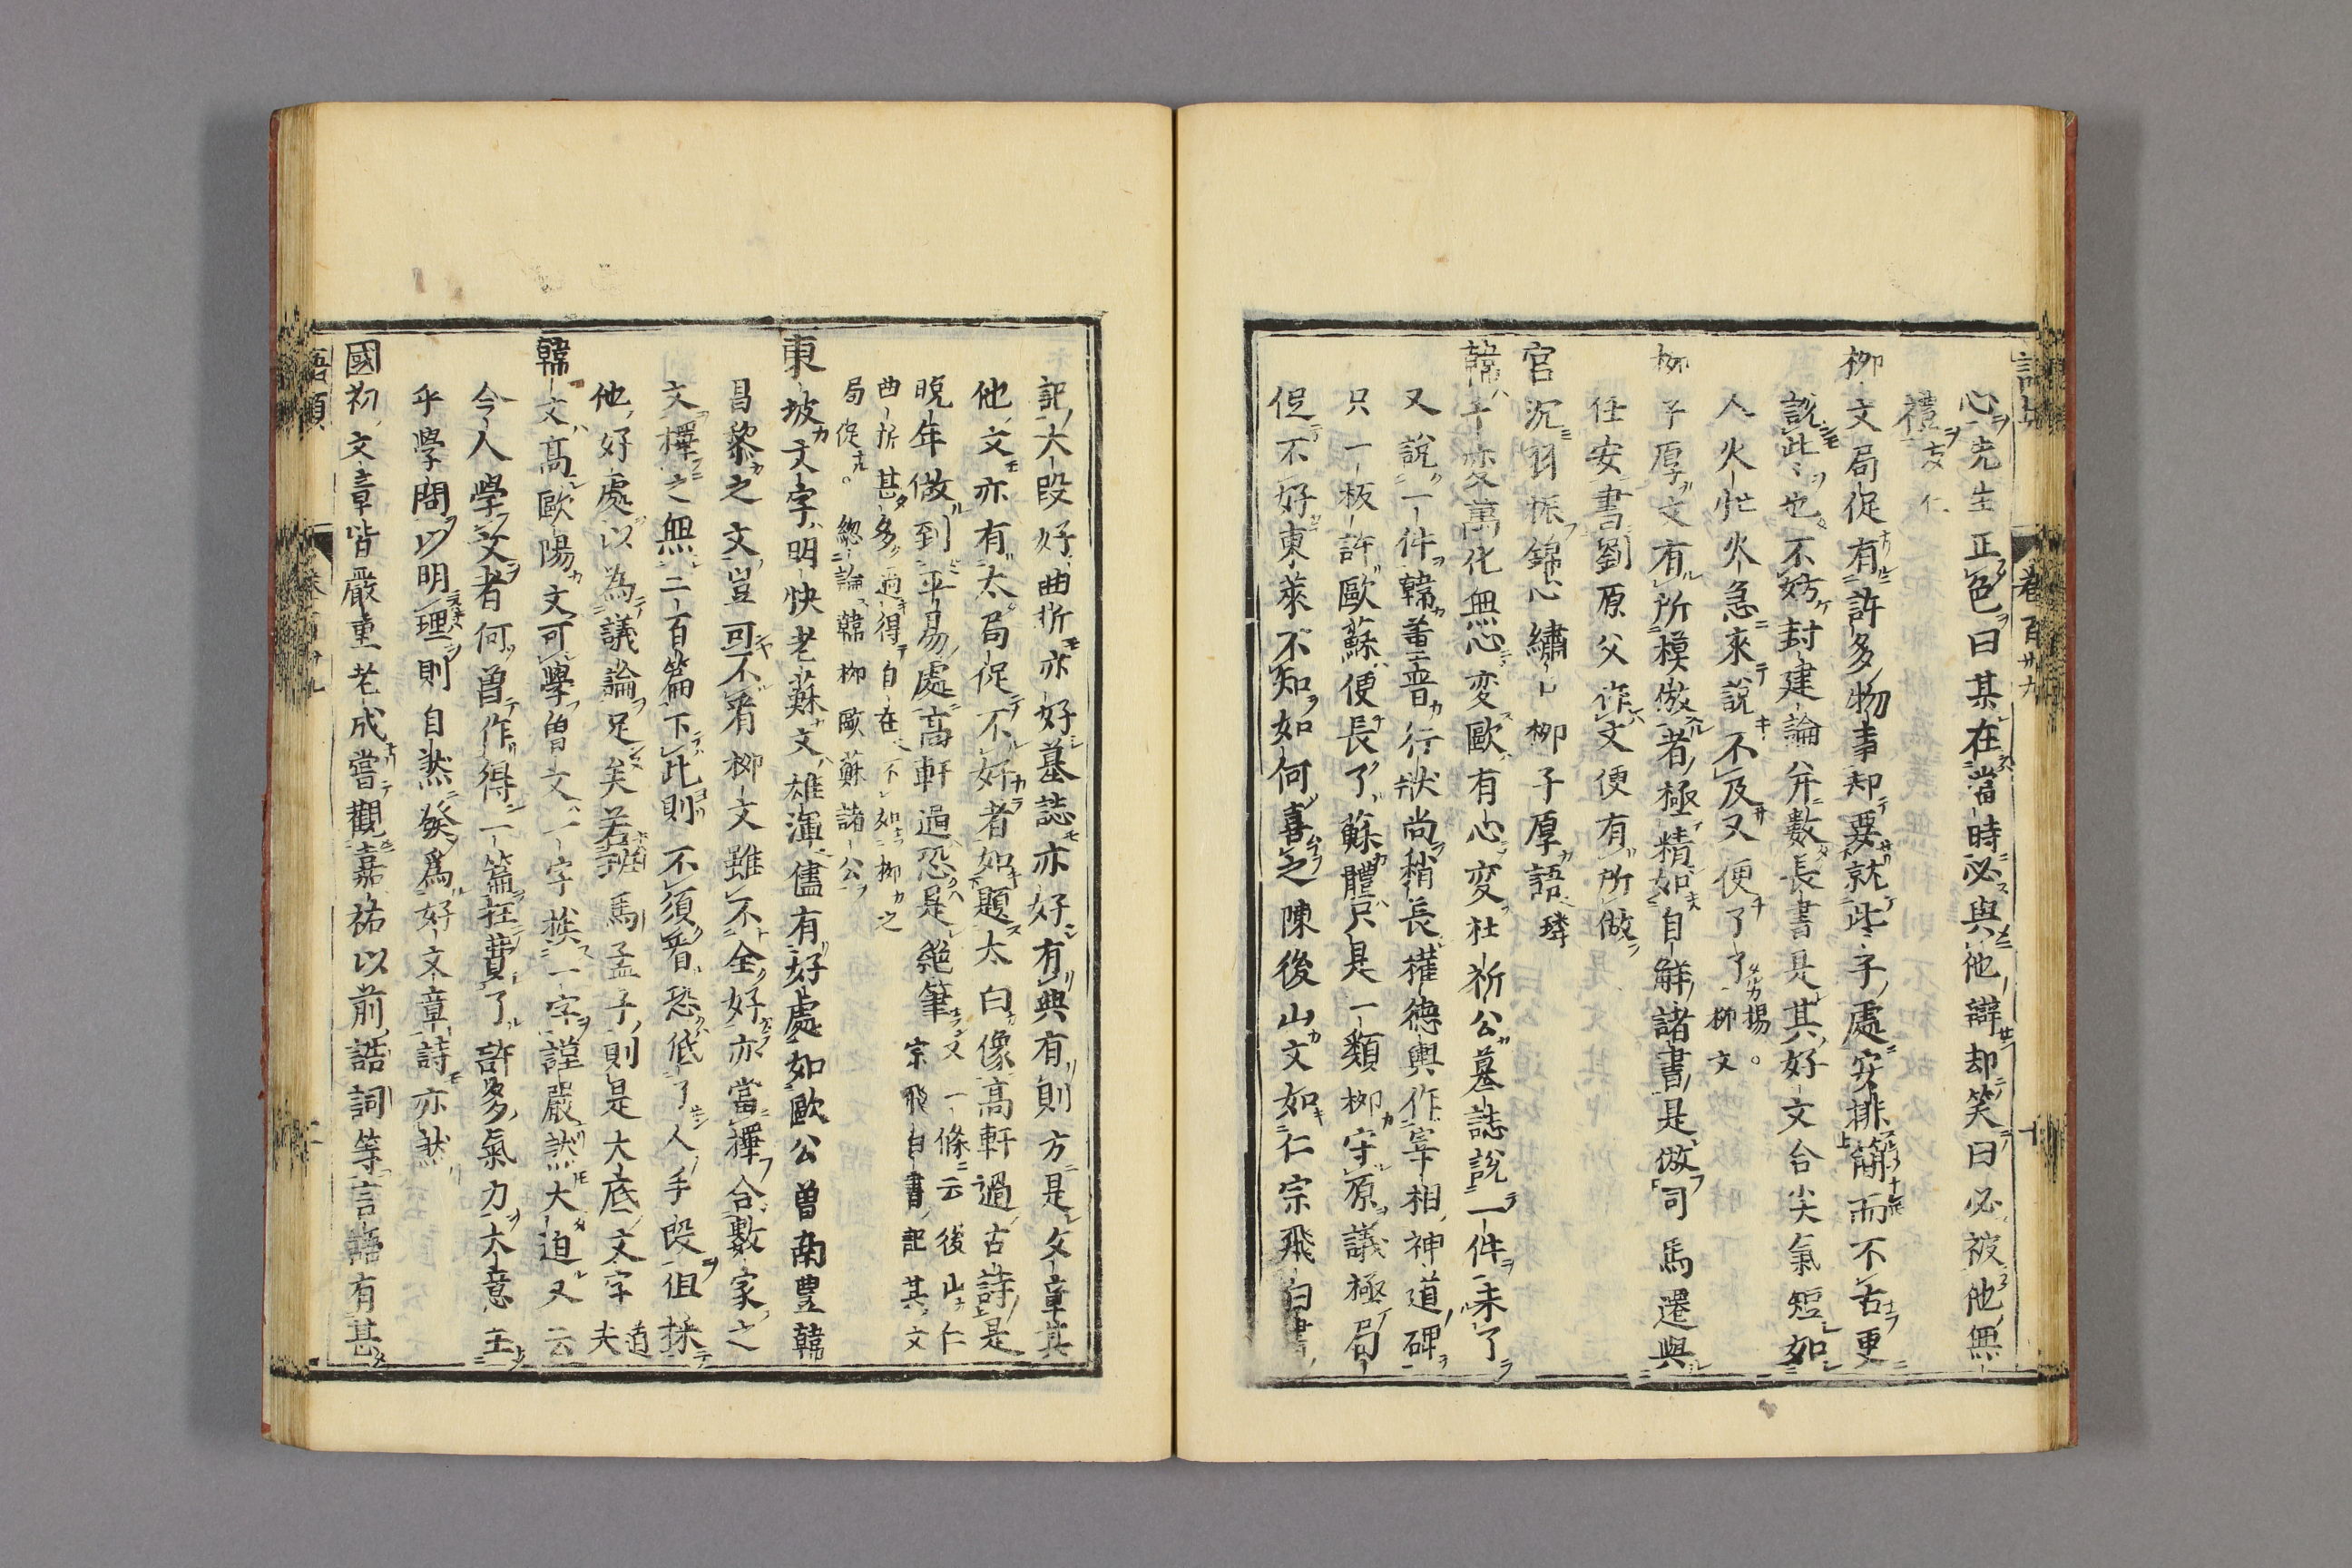 卷百卅九
心先生正色曰某在當時必與他辯却笑曰必被他無
禮 友仁
柳文局促有許多物事却要就些子處安排簡而不古更
說些也不妨封建論并數長書是其好文合尖氣短如
人火忙火急來說不及又便了了 揚。柳文
柳子厚文有所模倣者極精如自解諸書是倣司馬遷與
任安書劉原父作文便有所倣
宮沉羽振錦心繡口柳子厚語 璘
韓千變萬化無心變歐有心變杜祈公墓誌說一件未了
又說一件韓董晉行狀尚稍長權德輿作宰相神道碑
只一板許歐蘇便長了蘇體只是一類柳守原議極局
促不好東萊不知如何喜之陳後山文如仁宗飛白書
記大段好曲折亦好墓誌亦好有典有則方是文章其
他文亦有太局促不好者如題太白像高軒過古詩是
晚年做到平易處高軒過恐是絶筆 又一條云後山仁宗飛白書記其文
曲折甚多過得自在不如柳之局促。總論韓柳歐蘇諸公
東坡文字明快老蘇文雄渾儘有好處如歐公曾南豊韓
昌黎之文豈可不看柳文雖不全好亦當擇合數家之
文擇之無二百篇下此則不須看恐低了人手段但採
他好處以為議論足矣若班馬孟子則是大底文字 道夫
韓文高歐陽文可學曾文一字挨一字謹嚴然太迫又云
今人學文者何曾作得一篇枉費了許多氣力大意主
乎學問以明理則自然發爲好文章詩亦然
國初文章皆嚴重老成嘗觀嘉祐以前誥詞等言語有甚
語類
卷百卅九